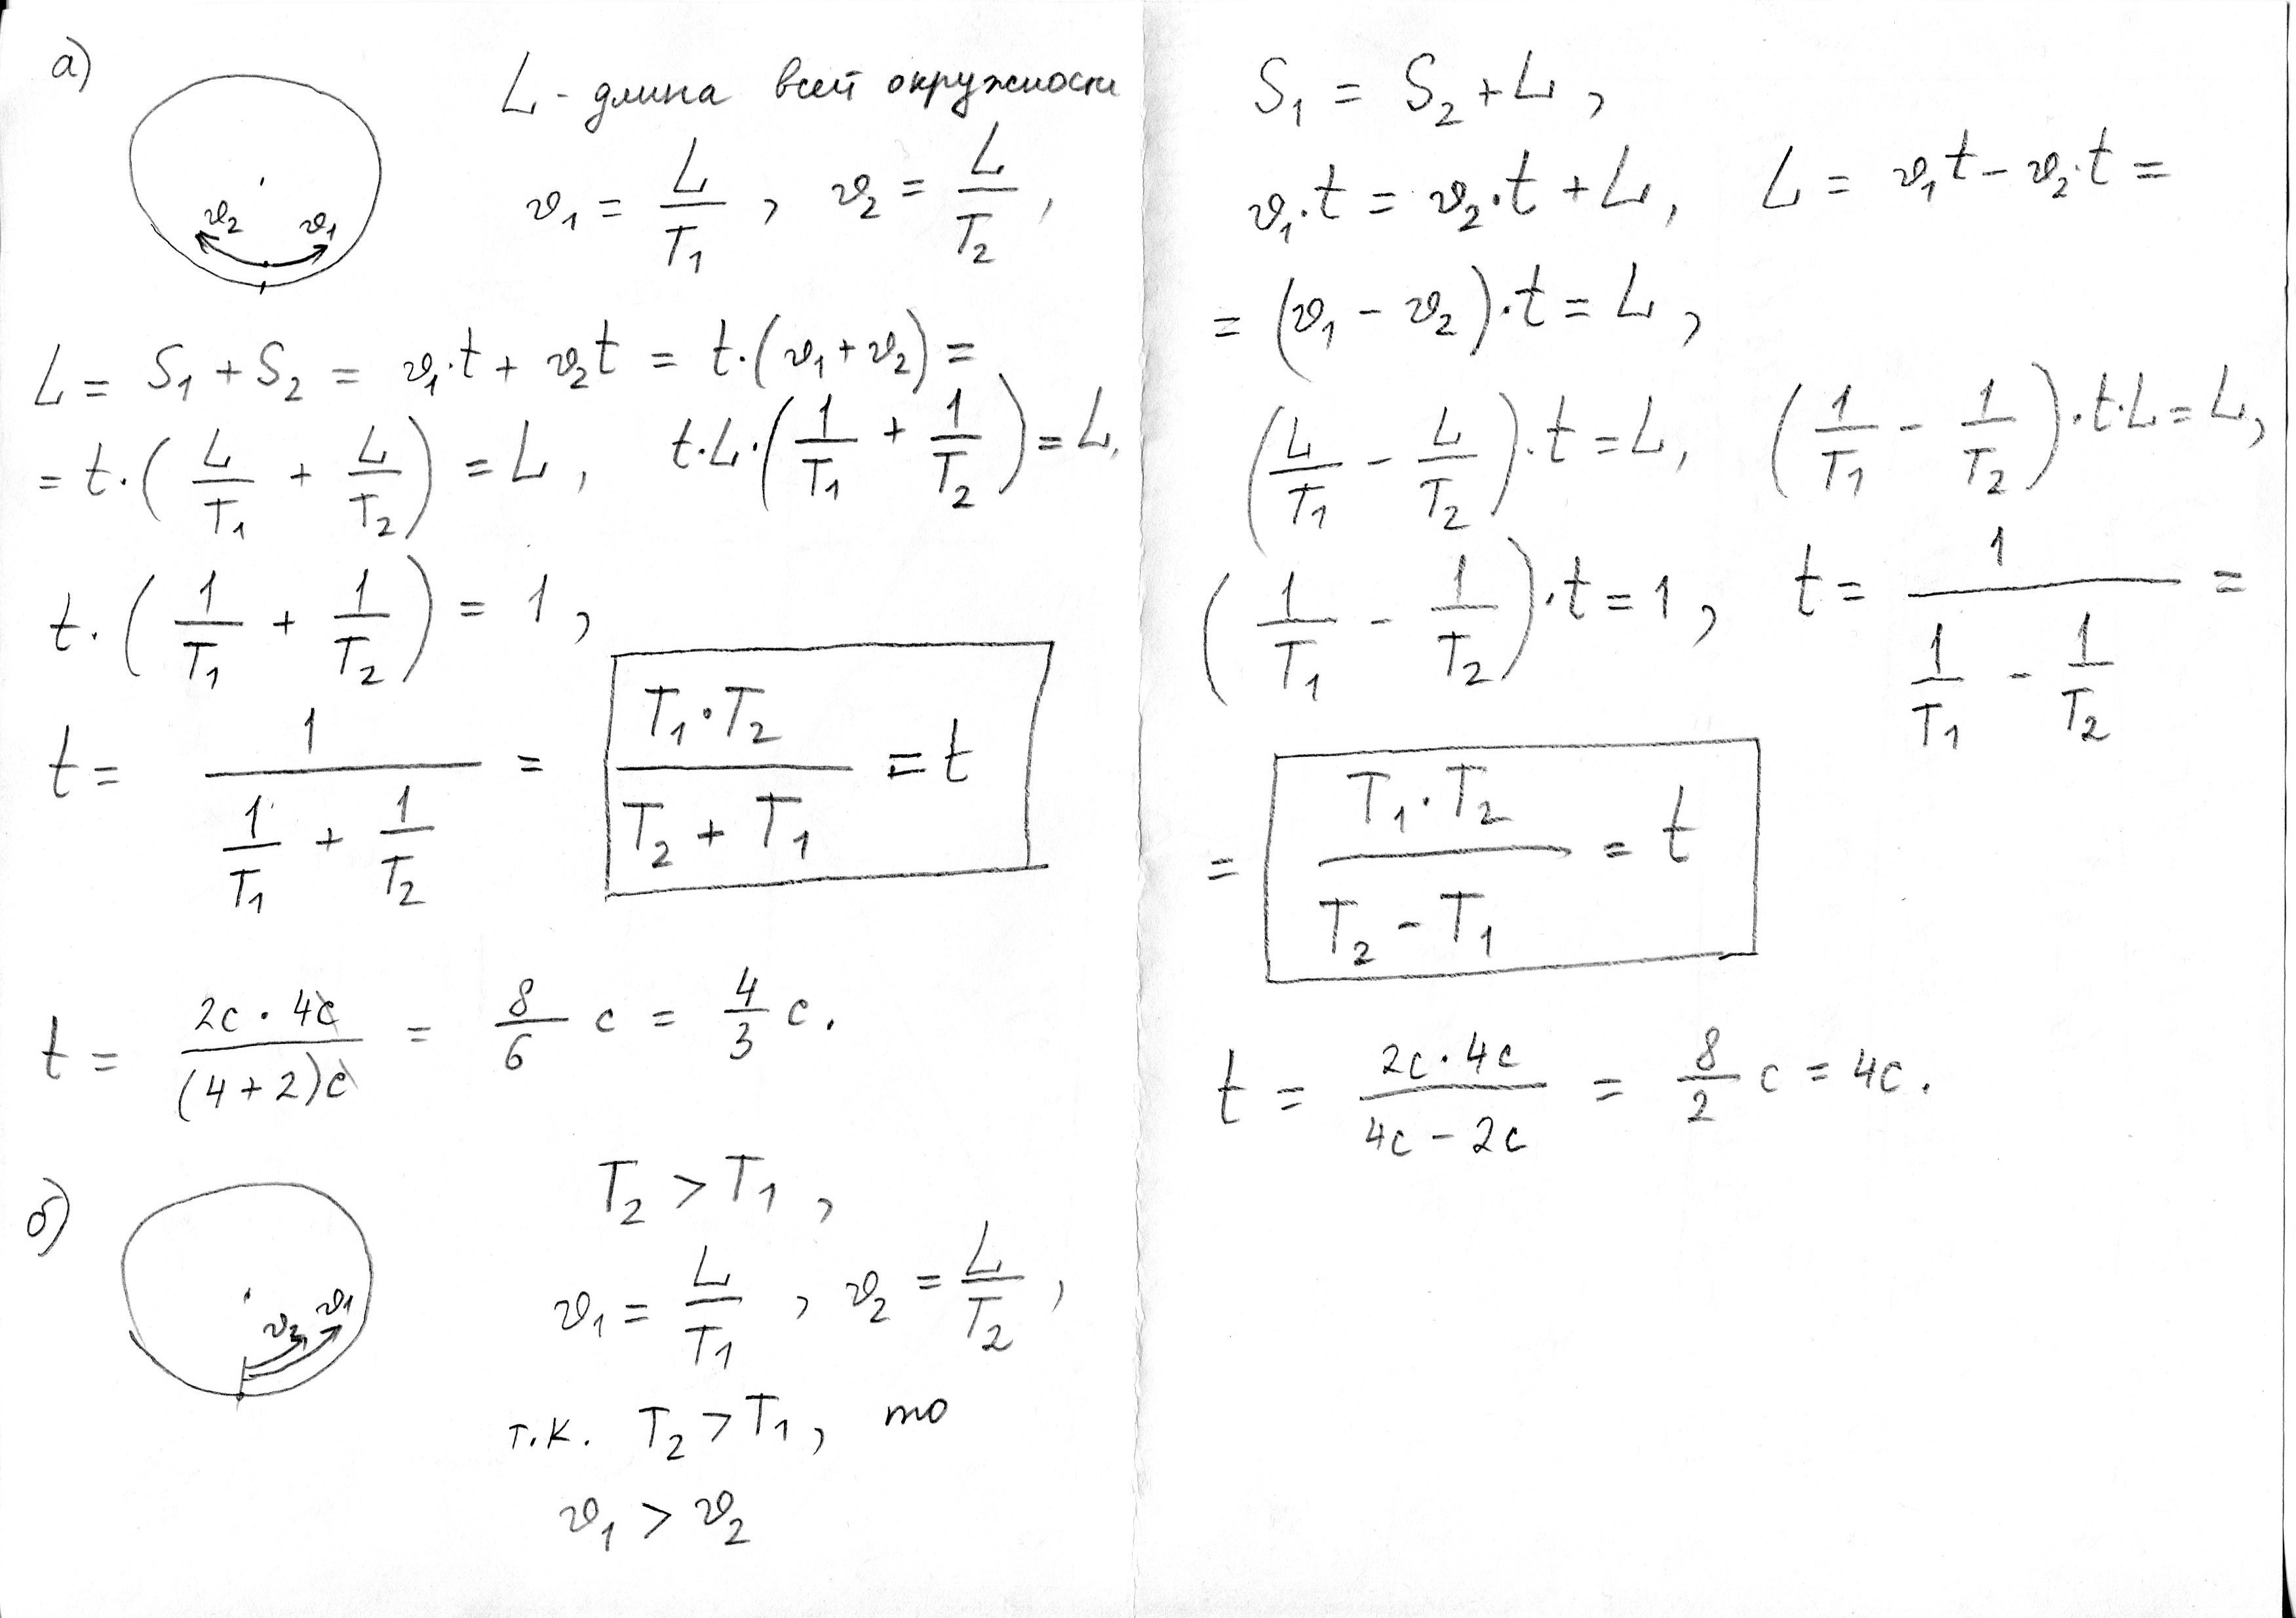 а)
L - длина всей окружности
v₁ = L/T₁ , v₂ = L/T₂ ,
v₂ v₁
L = S₁ + S₂ = v₁·t + v₂t = t·(v₁ + v₂) =
= t·(L/T₁ + L/T₂) = L , t·L·(1/T₁ + 1/T₂) = L,
t·(1/T₁ + 1/T₂) = 1 ,
t = 1/(1/T₁ + 1/T₂) = T₁·T₂/(T₂ + T₁) = t
t = 2с · 4с/(4 + 2)с = 8/6 с = 4/3 с.
б)
T₂ > T₁ ,
v₁ = L/T₁ , v₂ = L/T₂ ,
v₂ v₁
т.к. T₂ > T₁, то
v₁ > v₂
S₁ = S₂ + L ,
v₁·t = v₂·t + L, L = v₁t - v₂·t =
= (v₁ - v₂)·t = L ,
(L/T₁ - L/T₂)·t = L, (1/T₁ - 1/T₂)·t·L = L,
(1/T₁ - 1/T₂)·t = 1 , t = 1/(1/T₁ - 1/T₂) =
= T₁·T₂/(T₂ - T₁) = t
t = 2с·4с/(4с - 2с) = 8/2 с = 4с.